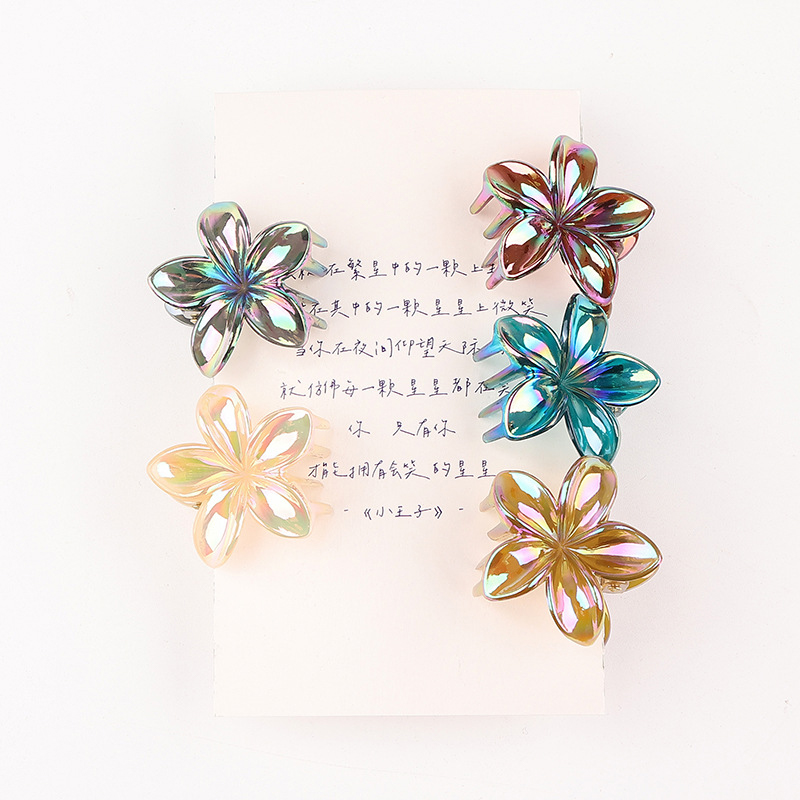 在繁星中的一颗上
在其中的一颗星星上微笑
当你在夜间仰望天际
就仿佛每一颗星星都在笑
你 只有你
才能拥有会笑的星星
-《小王子》-